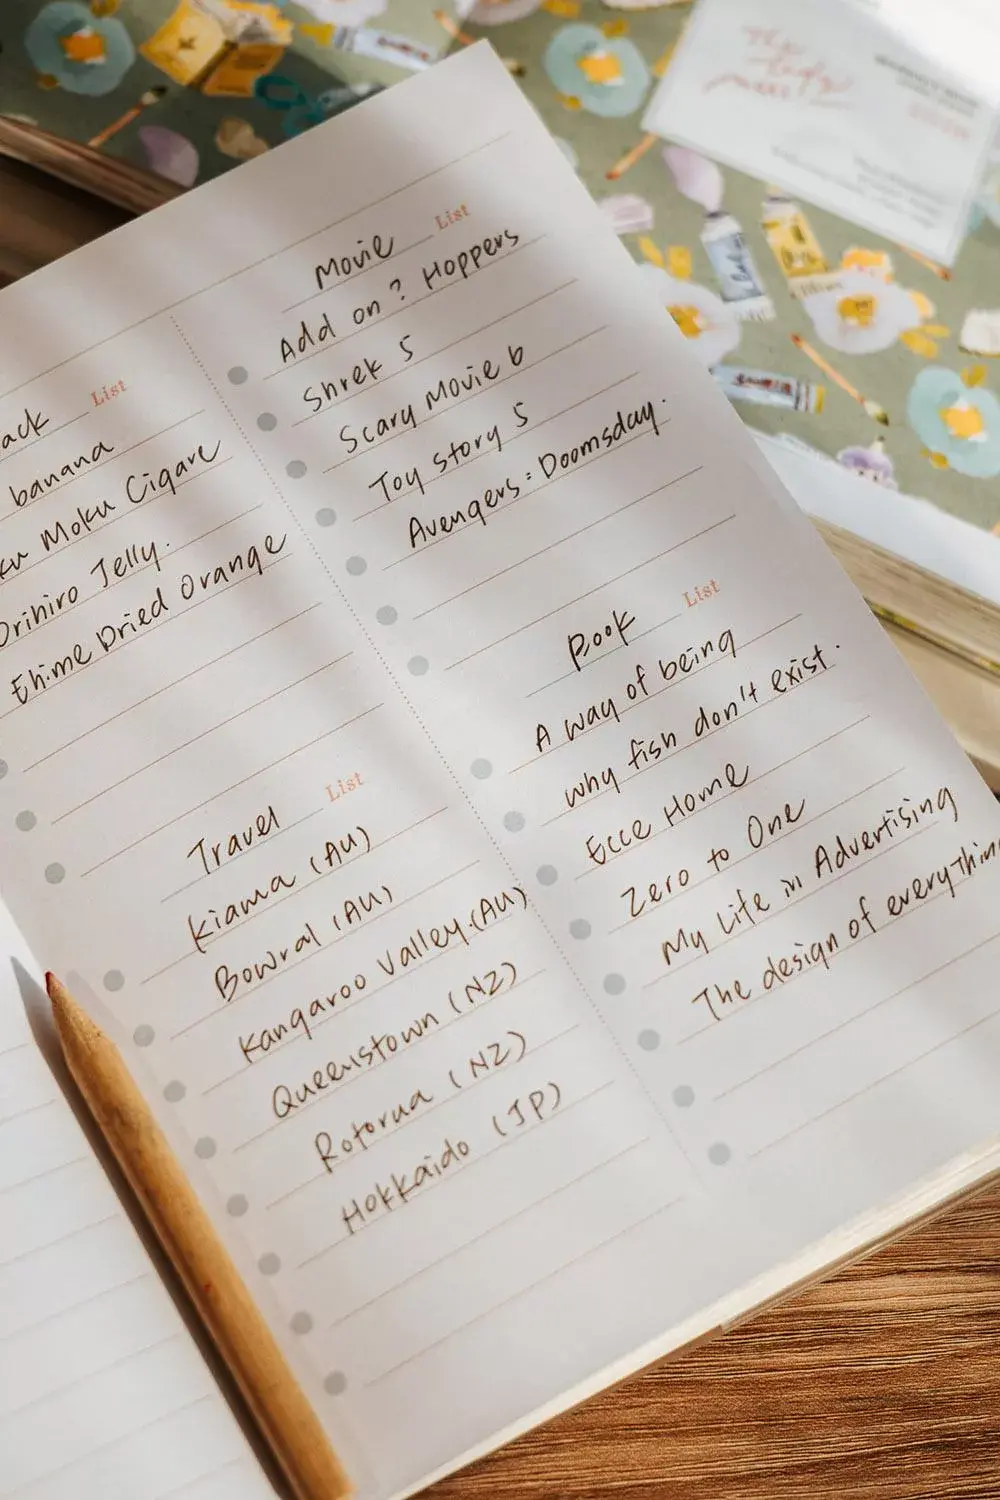 Movie List
Add on? Hoppers
Shrek 5
Scary Movie 6
Toy story 5
Avengers: Doomsday.
List
banana
Moku Cigare
Orihiro Jelly.
Ehime Dried Orange
Book List
A way of being
why fish don't exist.
Ecce Homo
Zero to One
My Life in Advertising
The design of everything
Travel List
Kiama (AU)
Bowral (AU)
Kangaroo Valley.(AU)
Queenstown (NZ)
Rotorua (NZ)
Hokkaido (JP)